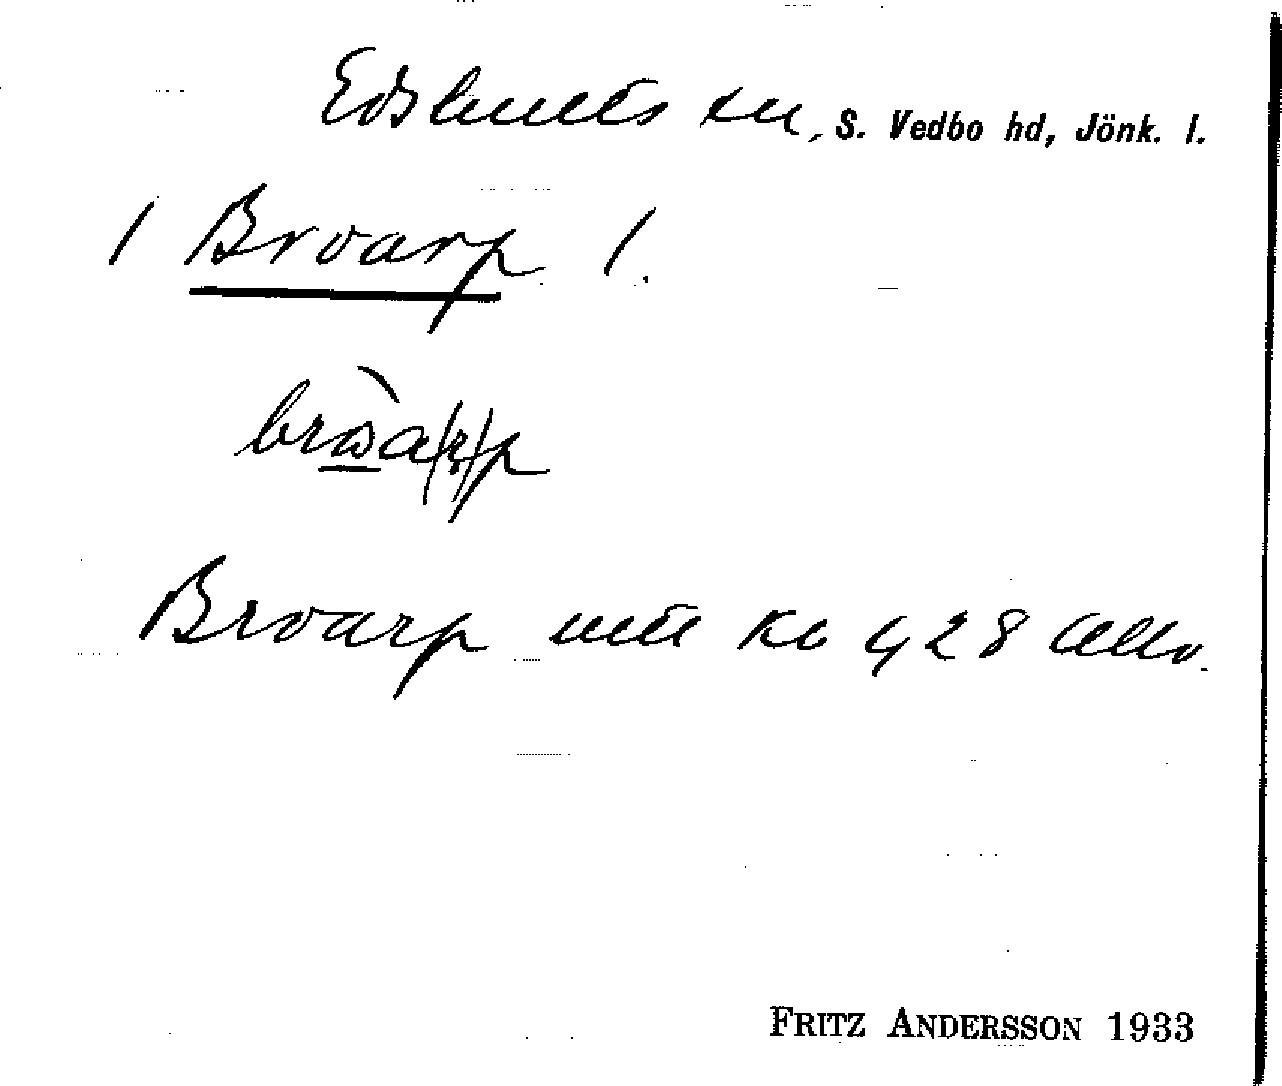 Edshults sn, S. Vedbo hd, Jönk. l.
/ Broarp /.
brωa(r)p
Broarp mtl Kb 428 Allm.
FRITZ ANDERSSON 1933